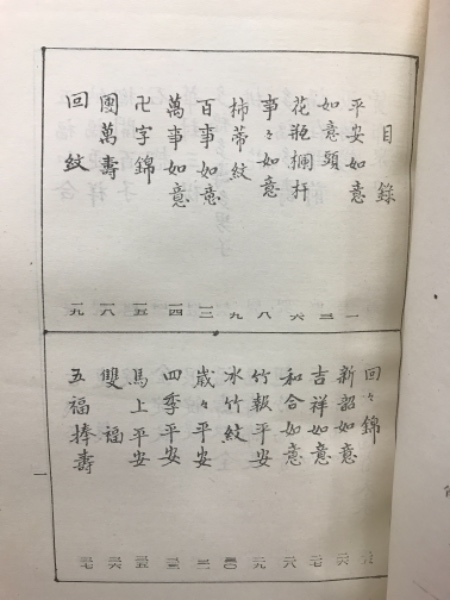 目錄
平安如意 一
如意頭
花瓶欄杆 六
事々如意 八
柿蒂紋 九
百事如意 一二
萬事如意 一四
卍字錦 一五
團萬壽 一八
回紋 一九
回々錦
新韶如意 二六
吉祥如意 二七
和合如意 二八
竹報平安 二九
冰竹紋 三〇
歲々平安
四季平安 三三
馬上平安 三五
雙福 三六
五福捧壽 三七
一